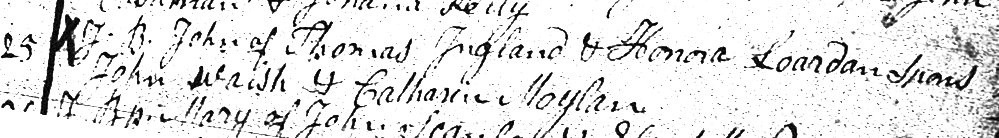 & Johana Kelly
25 X I. B. John of Thomas Ingland & Honora Loardan Spons
John Walsh & Catharin Moylan
Mary of John